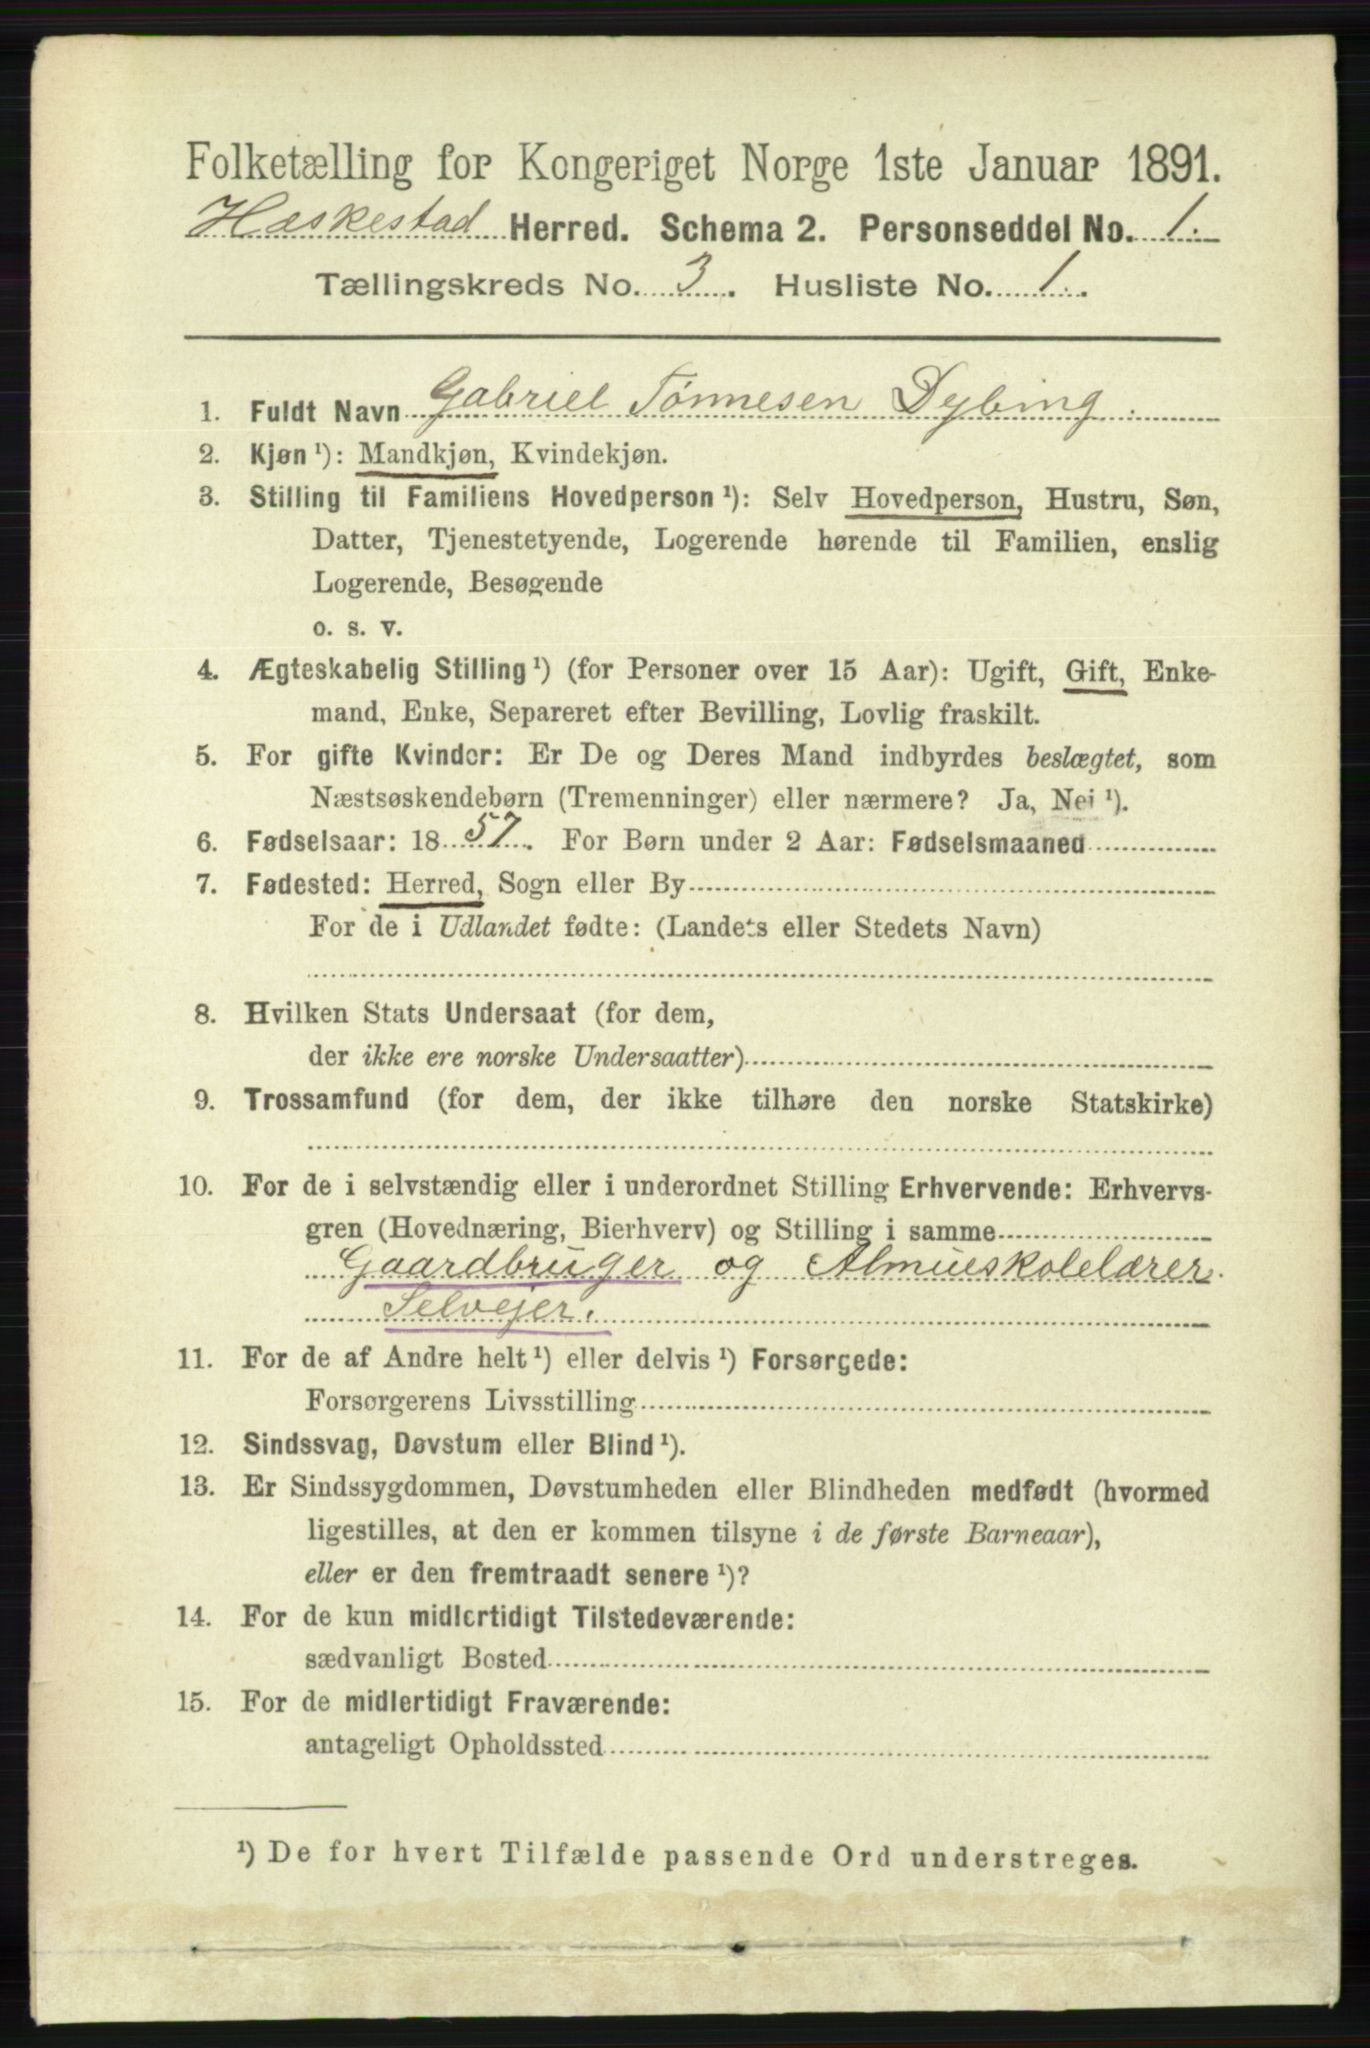 Folketælling for Kongeriget Norge 1ste Januar 1891.
Hæskestad Herred. Schema 2. Personseddel No. 1.
Tællingskreds No. 3. Husliste No. 1.
1. Fuldt Navn Gabriel Tønnesen Dybing.
2. Kjøn ¹): Mandkjøn, Kvindekjøn.
3. Stilling til Familiens Hovedperson ¹): Selv Hovedperson, Hustru, Søn,
Datter, Tjenestetyende, Logerende hørende til Familien, enslig
Logerende, Besøgende
o. s. v.
4. Ægteskabelig Stilling ¹) (for Personer over 15 Aar): Ugift, Gift, Enke-
mand, Enke, Separeret efter Bevilling, Lovlig fraskilt.
5. For gifte Kvinder: Er De og Deres Mand indbyrdes beslægtet, som
Næstsøskendebørn (Tremenninger) eller nærmere? Ja, Nei ¹).
6. Fødselsaar: 1857. For Børn under 2 Aar: Fødselsmaaned
7. Fødested: Herred, Sogn eller By
For de i Udlandet fødte: (Landets eller Stedets Navn)
8. Hvilken Stats Undersaat (for dem,
der ikke ere norske Undersaatter)
9. Trossamfund (for dem, der ikke tilhøre den norske Statskirke)
10. For de i selvstændig eller i underordnet Stilling Erhvervende: Erhvervs-
gren (Hovednæring, Bierhverv) og Stilling i samme
Gaardbruger og Almueskolelærer.
Selvejer.
11. For de af Andre helt ¹) eller delvis ¹) Forsørgede:
Forsørgerens Livsstilling
12. Sindssvag, Døvstum eller Blind ¹).
13. Er Sindssygdommen, Døvstumheden eller Blindheden medfødt (hvormed
ligestilles, at den er kommen tilsyne i de første Barneaar),
eller er den fremtraadt senere ¹)?
14. For de kun midlertidigt Tilstedeværende:
sædvanligt Bosted
15. For de midlertidigt Fraværende:
antageligt Opholdssted
¹) De for hvert Tilfælde passende Ord understreges.